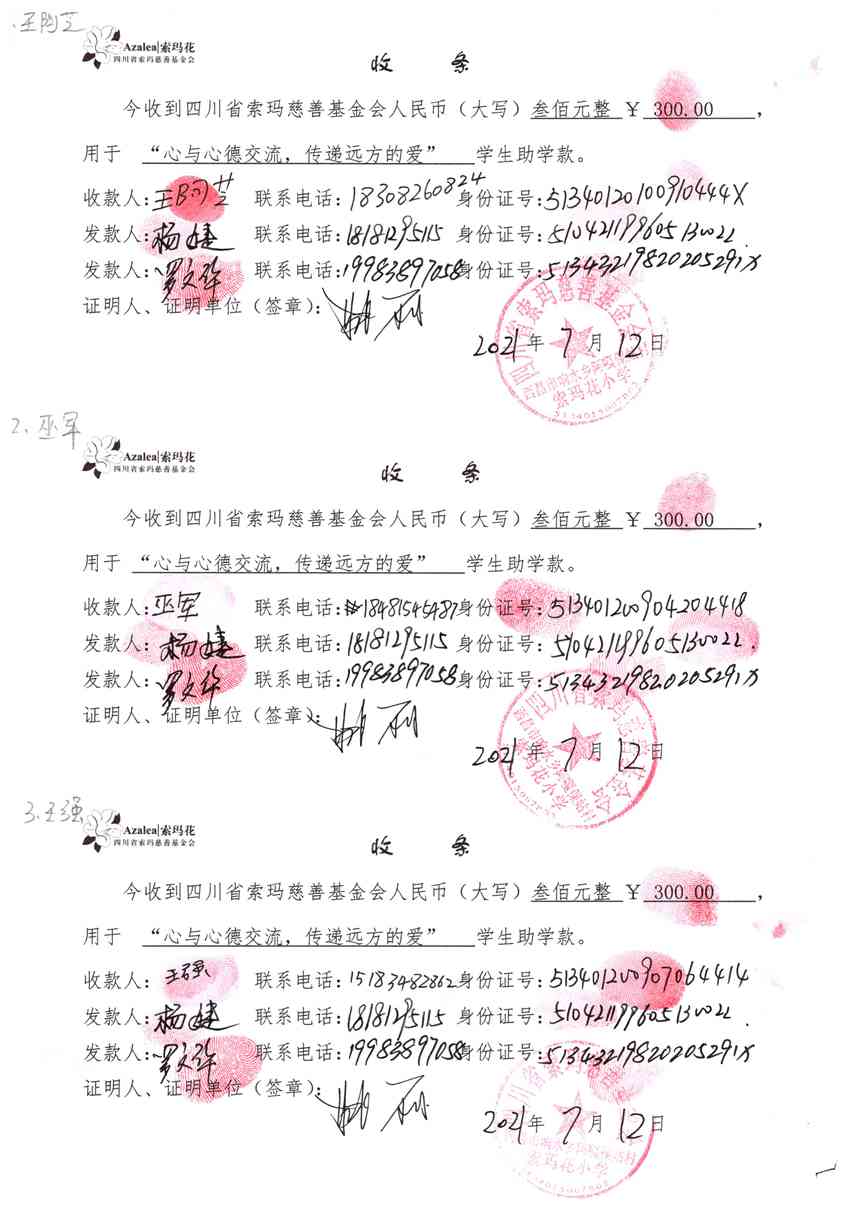 王阿芝
Azalea|索玛花
四川省索玛慈善基金会
收 条
今收到四川省索玛慈善基金会人民币（大写）叁佰元整 ￥ 300.00 ，
用于 “心与心德交流，传递远方的爱” 学生助学款。
收款人:王阿芝 联系电话:18308260824 身份证号:51340120100910444X
发款人:杨婕 联系电话:18181295115 身份证号:510421199605130022
发款人:罗文华 联系电话:19983897058 身份证号:51343219820205291X
证明人、证明单位（签章）:
2021年 7月 12日
四川省索玛慈善基金会
索玛花小学
2、巫军
Azalea|索玛花
四川省索玛慈善基金会
收 条
今收到四川省索玛慈善基金会人民币（大写）叁佰元整 ￥ 300.00 ，
用于 “心与心德交流，传递远方的爱” 学生助学款。
收款人:巫军 联系电话:18481545487 身份证号:513401200904204418
发款人:杨婕 联系电话:18181295115 身份证号:510421199605130022
发款人:罗文华 联系电话:19983897058 身份证号:51343219820205291X
证明人、证明单位（签章）:
2021年 7月 12日
四川省索玛慈善基金会
索玛花小学
3.王强
Azalea|索玛花
四川省索玛慈善基金会
收 条
今收到四川省索玛慈善基金会人民币（大写）叁佰元整 ￥ 300.00 ，
用于 “心与心德交流，传递远方的爱” 学生助学款。
收款人: 王强 联系电话:15183482862 身份证号:513401200907064414
发款人:杨婕 联系电话:18181295115 身份证号:510421199605130022
发款人:罗文华 联系电话:19983897058 身份证号:51343219820205291X
证明人、证明单位（签章）:
2021年 7月 12日
索玛花小学